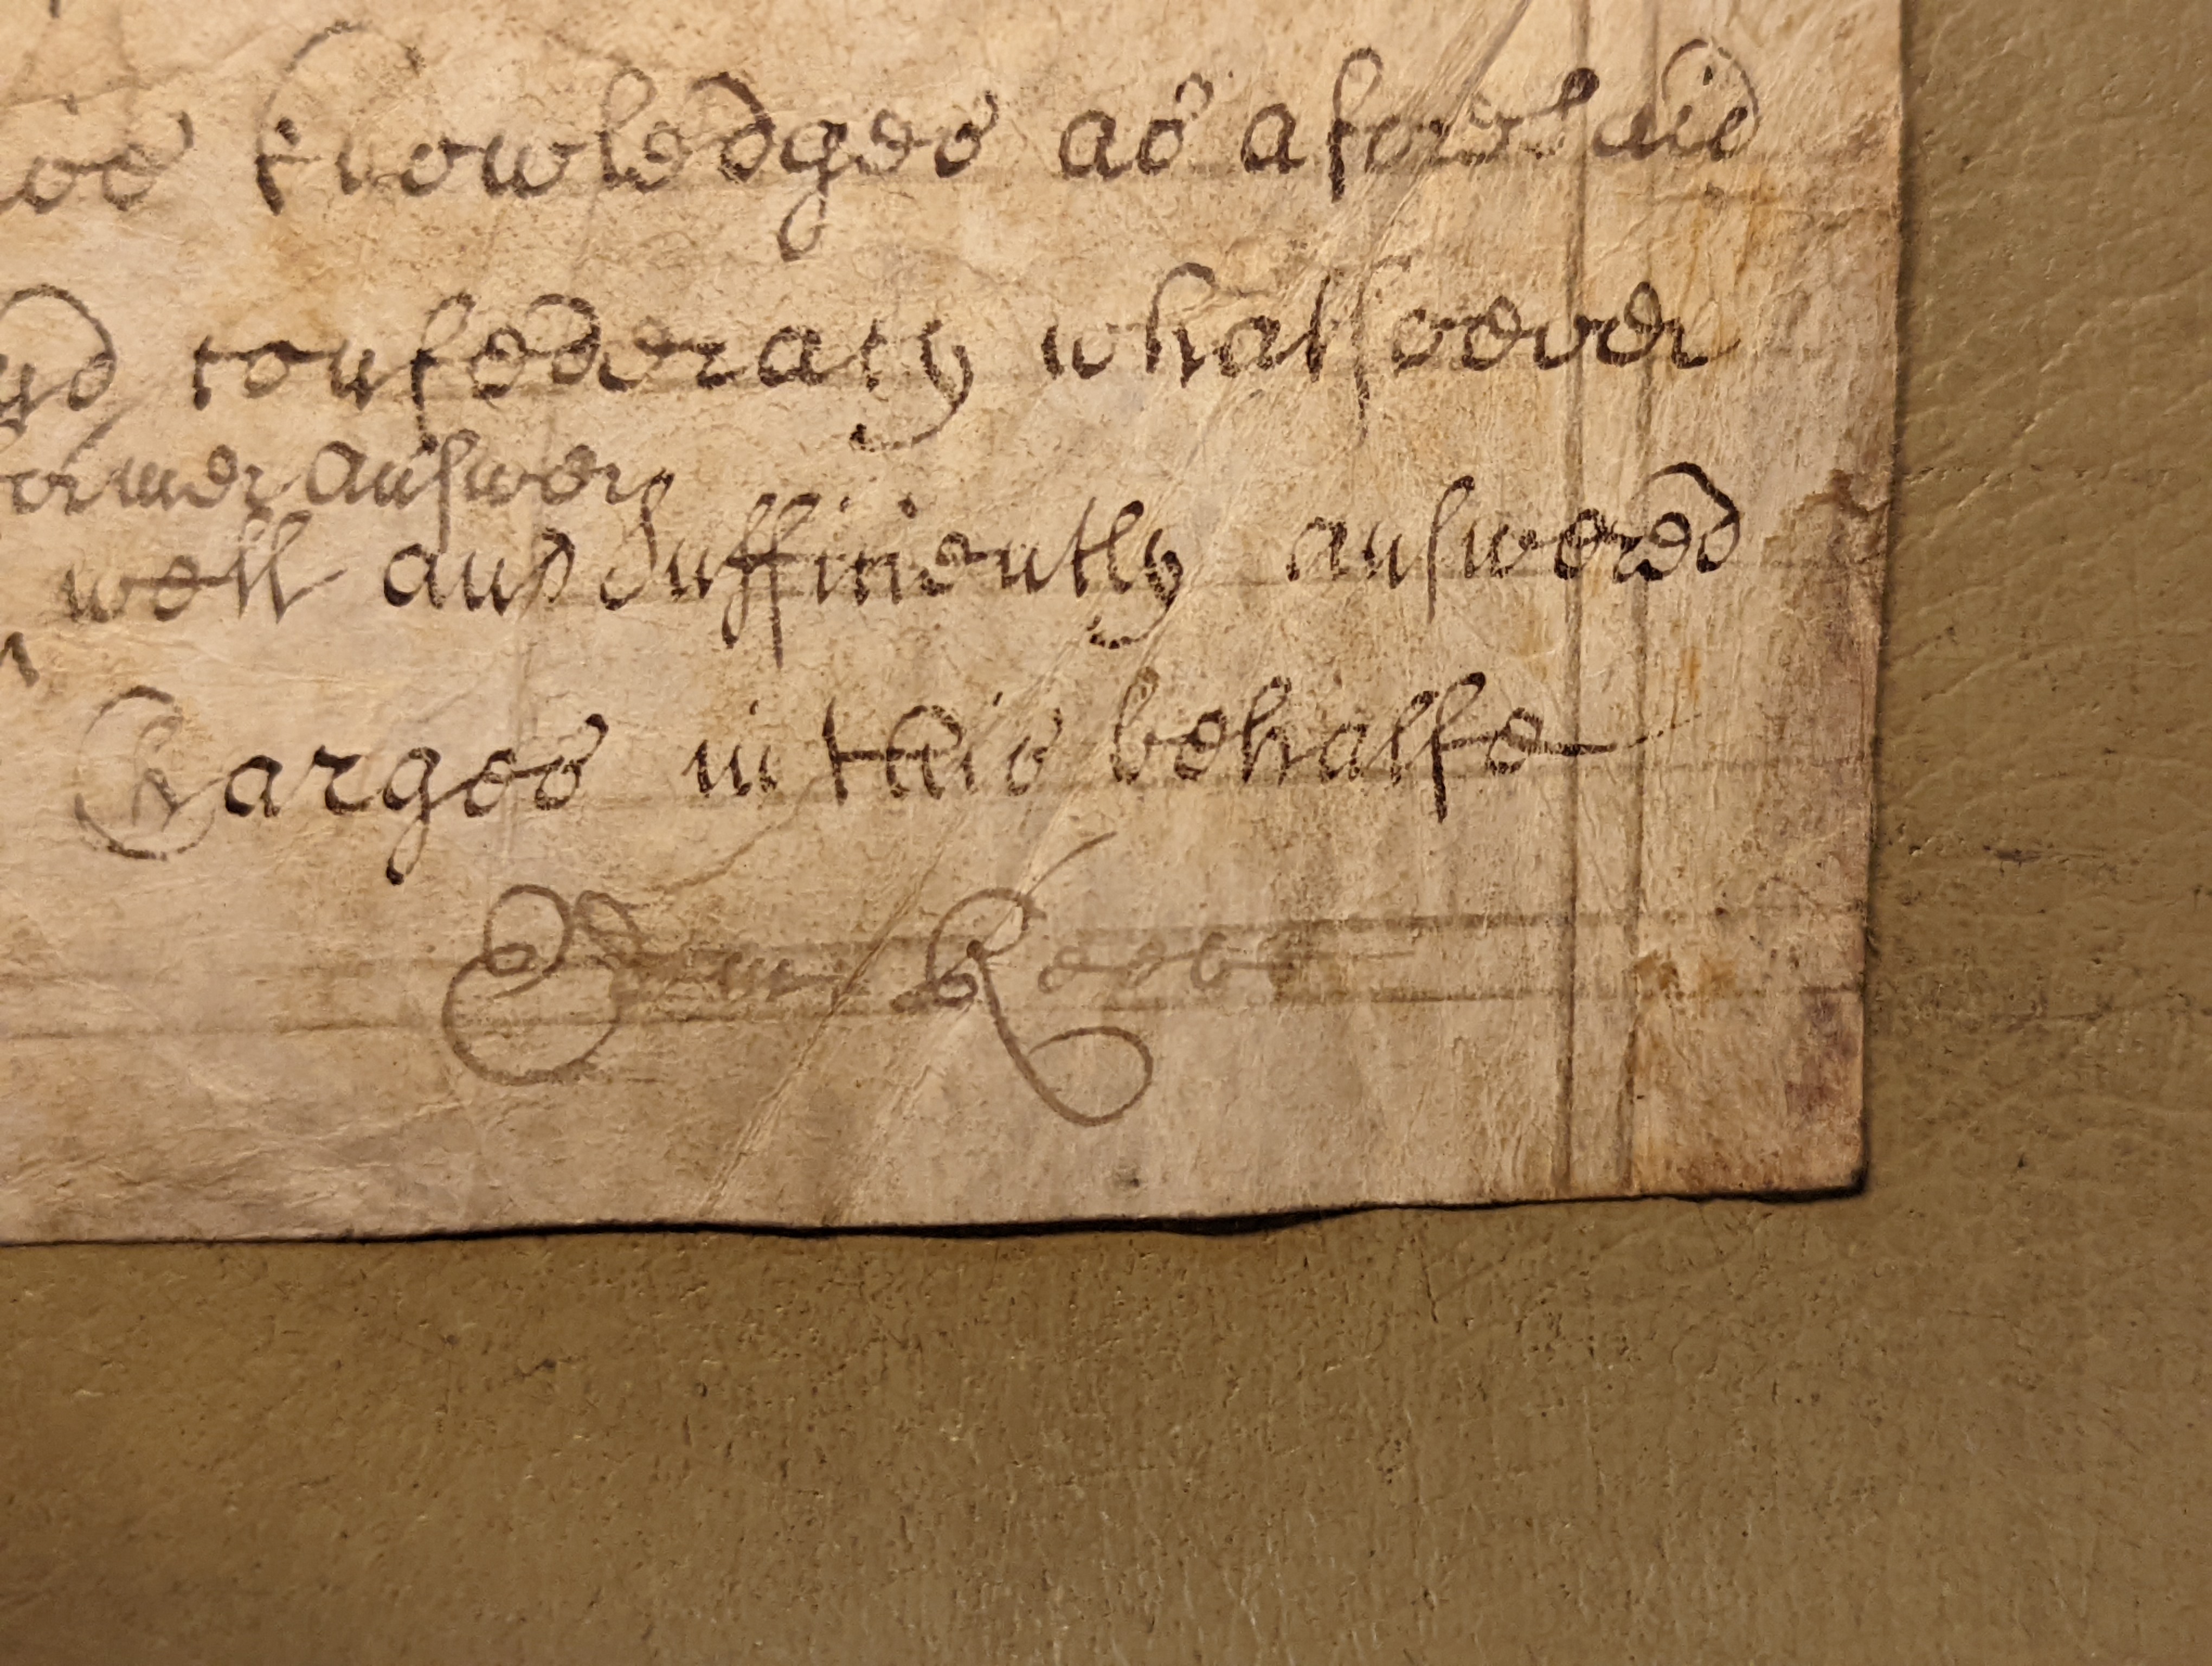 knowledges as aforesaid
confederacy whatsoever
former answer
well and sufficiently answered
Charges in this behalfe
Edm Reeve